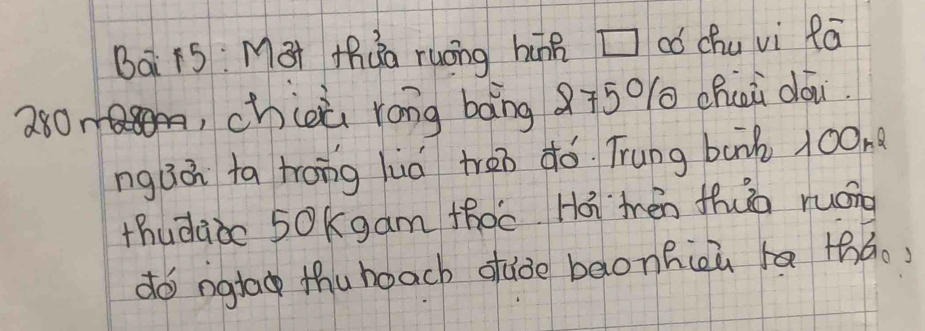 Bài 15: Một thửa ruộng hình □ có chu vi là
280 m, chiều rộng bằng 275% chiều dài.
người ta trồng lúa trên đó. Trung bình 100m2
thu được 50Kgam thóc. Hỏi trên thửa ruộng
đó ngta thu hoạch được bao nhiêu tạ thóc